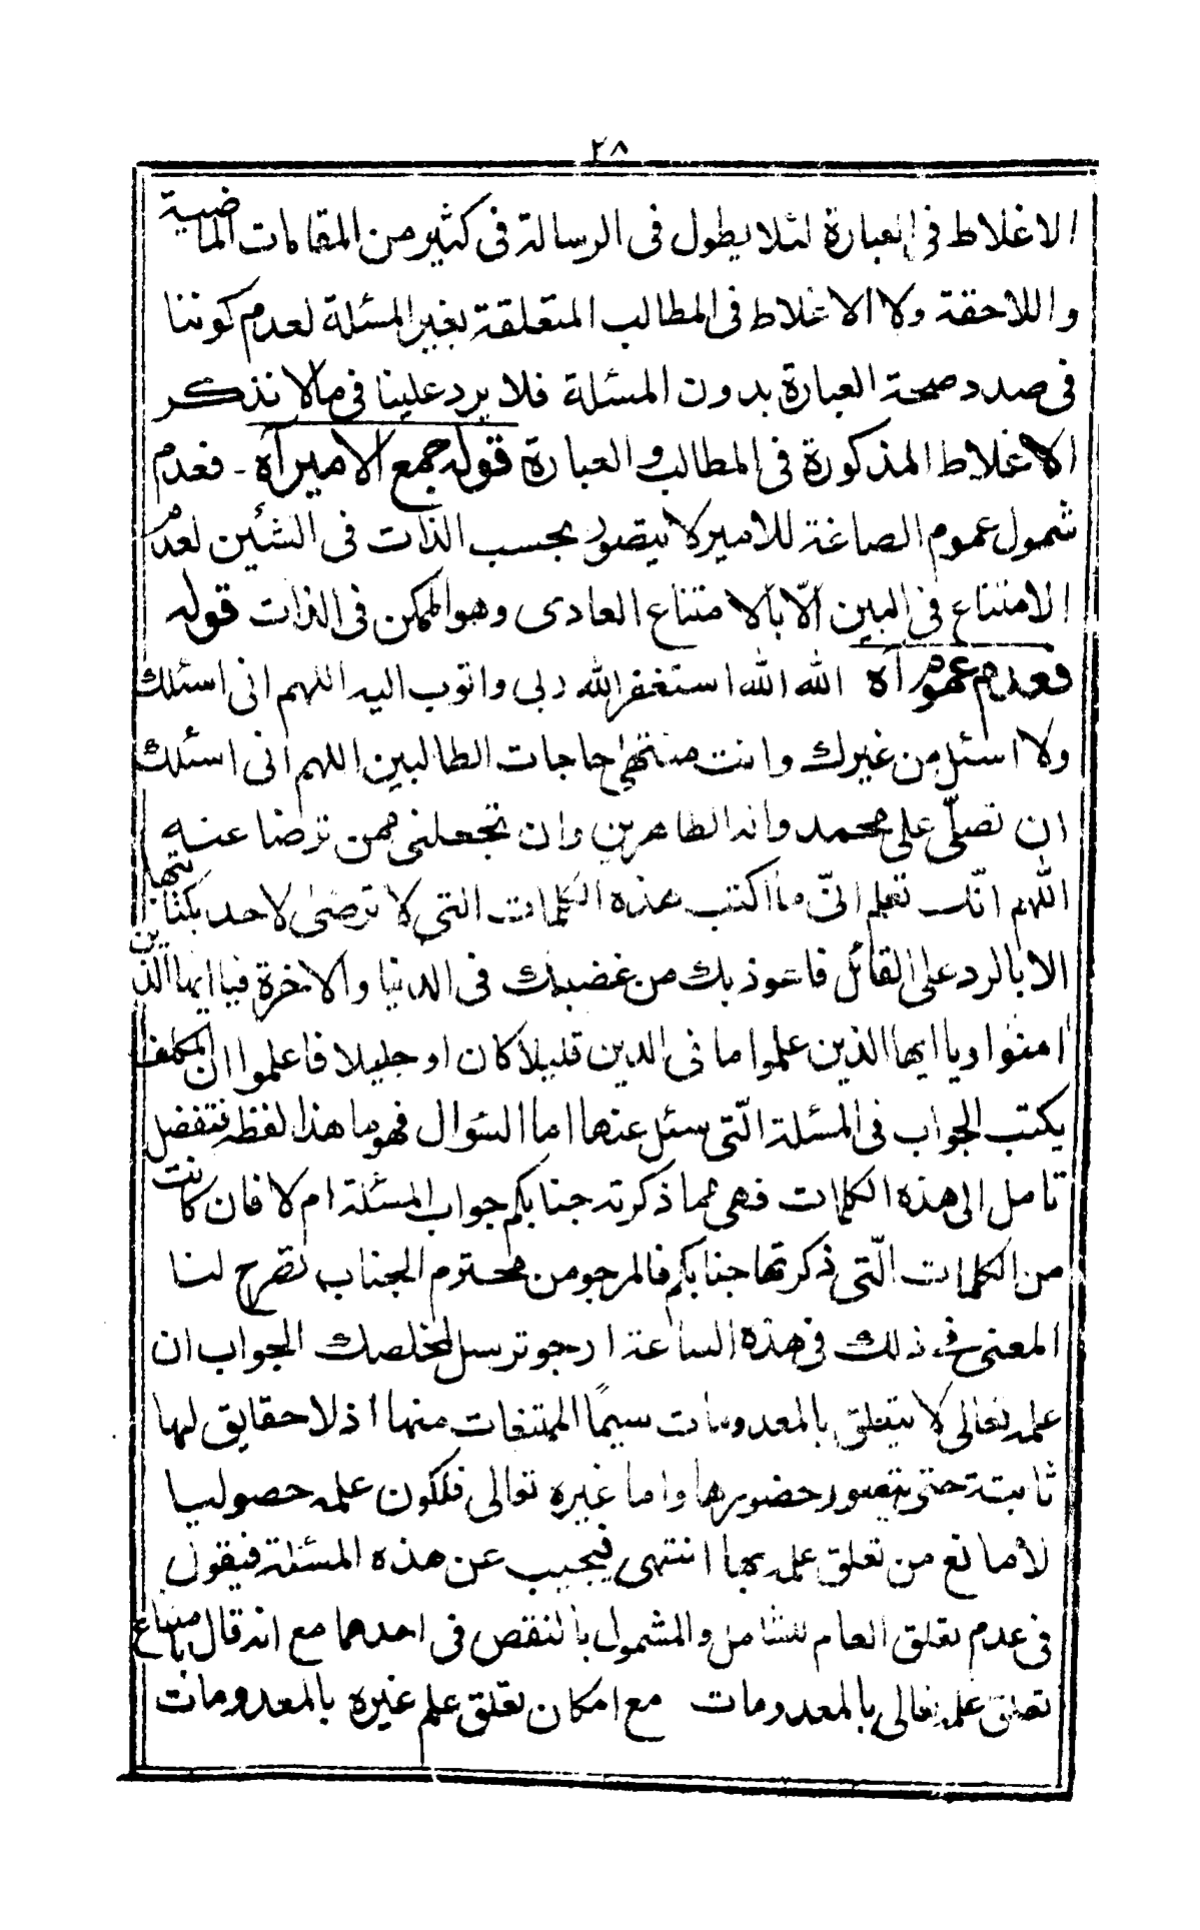 ٢٨
الاغلاط فى العبارة لئلا يطول فى الرسالة فى كثير من المقامات الماضية
واللاحقة ولا الاغلاط فى المطالب المتعلقة بغير المسئلة لعدم كوننا
فى صدد صحة العبارة بدون المسئلة فلا يرد علينا فى ما لا نذكر
الاغلاط المذكورة فى المطالب والعبارة قوله جمع الامير آه - فعدم
شمول عموم الصاغة للامير لا يتصور بحسب الذات فى الشئين لعدم
الامتناع فى البين الّا بالامتناع العادى وهو الممكن فى الذات قوله
فعدم عموم آه الله الله استغفر الله ربى واتوب اليه اللهم انى اسئلك
ولا اسئل من غيرك وانت منتهى حاجات الطالبين اللهم انى اسئلك
ان تصلّى على محمد وآله الطاهرين وان تجعلنى ممن ترضا عنه
اللهم انّك تعلم انّى ما اكتب هذه الكلمات التى لا ترضىٰ لاحد بكتابتها
الا بالرد على القائل فاعوذ بك من غضبك فى الدنيا والاخرة فيا ايها الذين
امنوا ويا ايها الذين علموا ما فى الدين قليلا كان او جليلا فاعلموا ان المكلف
يكتب الجواب فى المسئلة الّتى سئل عنها اما السؤال فهو ما هذا لفظه نتفضل
تامل الى هذه الكلمات فهى مما ذكرته جنابكم جواب المسئلة ام لا فان كانت
من الكلمات الّتى ذكرتها جنابكم فالمرجو من محترم الجناب تقرح لنا
المعنى فى ذلك فى هذه الساعة ارجو ترسل لمخلصك الجواب ان
علمه تعالى لا يتعلق بالمعدومات سيمًا الممتنعات منها اذ لا حقايق لها
ثابتة حتى يتصور حضورها واما غيره تعالى فلكون علمه حصوليا
لا مانع من تعلق علمه بها انتهى فيجيب عن هذه المسئلة فيقول
فى عدم تعلق العام للشامل والمشمول بالنقص فى احدهما مع انه قال بامتناع
تعلق علمه تعالى بالمعدومات مع امكان تعلق علم غيره بالمعدومات